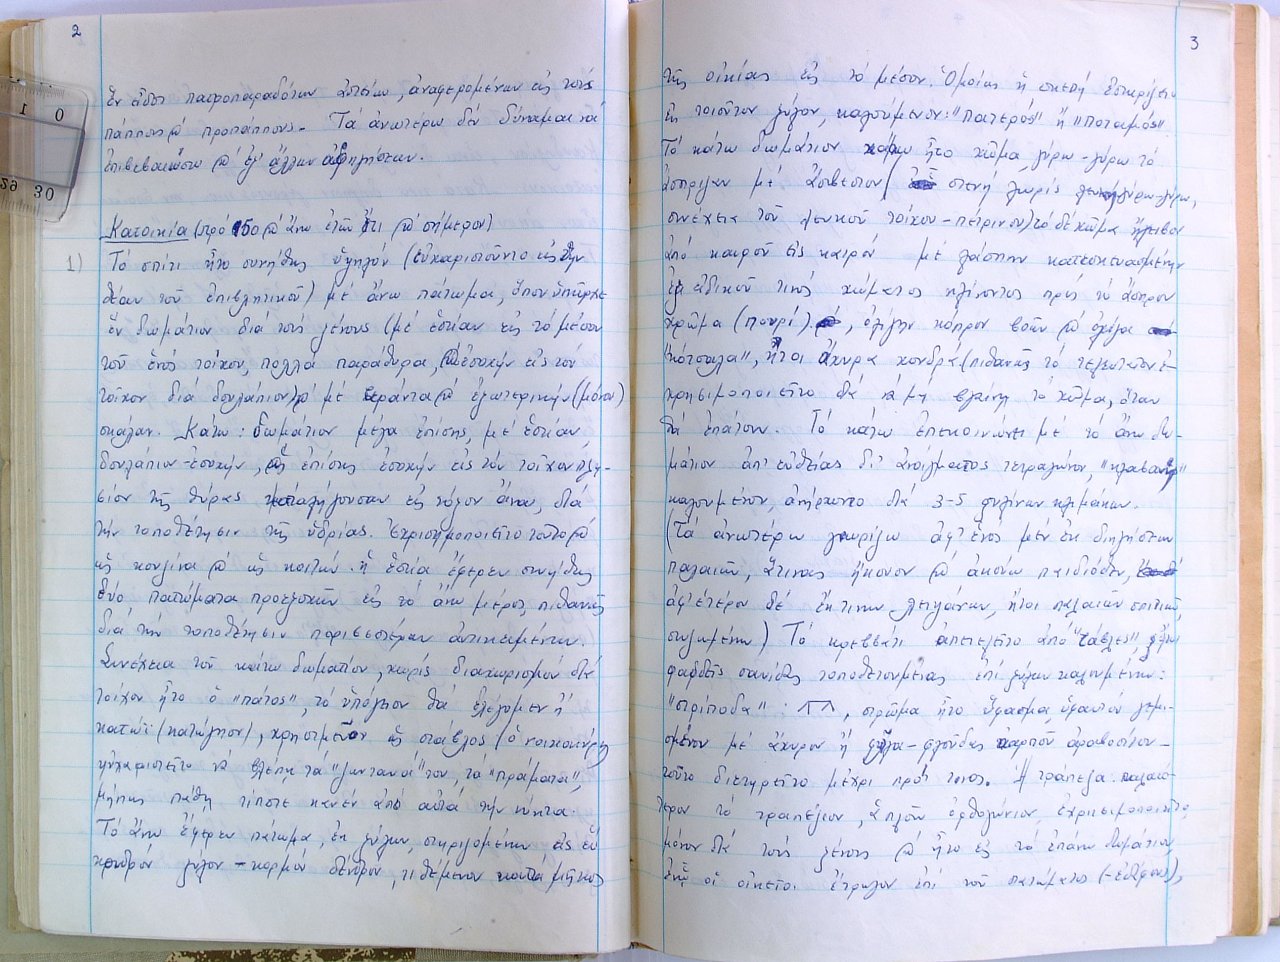 2
ἓν εἶδος πατροπαραδότων ἀστείων, ἀναφερομένων εἰς τούς
πάππους & προπάππους. Τά ἀνωτέρω δέν δύναμαι νά
ἐπιβεβαιώσω & ἐξ ἄλλων ἀφηγήσεων.
Κατοικία (πρό 150 & ἄνω ἐτῶν ἔτι & σήμερον)
1) Τό σπίτι ἦτο συνήθως ὑψηλόν (εὐχαριστοῦντο εἰς τήν
θέαν τοῦ ἐπιβλητικοῦ) μέ ἄνω πάτωμα, ὅπου ὑπῆρχε
ἕν δωμάτιον διά τούς ξένους (μέ ἑστίαν εἰς τό μέσον
τοῦ ἑνός τοίχου, πολλά παράθυρα, & ἐσοχήν εἰς τόν
τοῖχον διά δουλάπιον) μέ & ἐξωτερικήν (μόνον)
σκάλαν. Κάτω: δωμάτιον μέγα ἐπίσης, μέ ἑστίαν,
δουλάπιον-ἐσοχήν, ὡς ἐπίσης ἐσοχήν εἰς τόν τοῖχον πλη-
σίον τῆς θύρας καταλήγουσαν εἰς τόξον ἄνω, διά
τήν τοποθέτησιν τῆς ὑδρίας. Ἐχρησιμοποιεῖτο τοῦτο &
ὡς κουζίνα & ὡς κοιτών. ἡ ἑστία ἔφερεν συνήθως
δύο πατώματα προεξοχῶν εἰς τό ἄνω μέρος, πιθανῶς
διά τήν τοποθέτησιν περισσοτέρων ἀντικειμένων.
Συνέχεια τοῦ κάτω δωματίου, χωρίς διαχωρισμόν διά
τοίχου ἦτο ὁ "πάτος", τό ὑπόγειον θά ἐλέγομεν ἤ
κατώϊ (κατώγειον), χρησιμεῦον ὡς σταῦλος (ὁ νοικοκύρης
ηὐχαριστεῖτο νά βλέπῃ τά "ζωντανά" του, τά "πράματα",
μήπως πάθῃ τίποτε κανέν ἀπό αὐτά τήν νύκτα.
Τό ἄνω ἔφερεν πάτωμα, ἐκ ξύλων, στηριζομένων εἰς ἕν
χονδρόν ξύλον - κορμόν δένδρου, τιθέμενον κατά μῆκος
3
τῆς οἰκίας εἰς τό μέσον. Ὁμοίως ἡ σκεπή ἐστηρίζετο
εἰς τοιοῦτον ξύλον, καλούμενον: "πατερός" ἤ "ποταμός".
Τό κάτω δωμάτιον κάτω ἦτο χῶμα, γύρω-γύρω τό
ἄσπριζαν μέ ἀσβέστην ( στενή λωρίς γύρω-γύρω,
συνέχεια τοῦ λευκοῦ τοίχου - πέτρινου) τό δέ χῶμα ἤλειβον
ἀπό καιροῦ εἰς καιρόν μέ λάσπην κατεσκευασμένην
ἐξ εἰδικοῦ τινός χώματος κλίνοντος πρός τό ἄσπρον
χρῶμα (πουρί), ὀλίγην κόπρον βοῶν & ὀλίγα
"κότσαλα", ἤτοι ἄχυρα χονδρά (πιθανῶς τό τελευταῖον ἐ-
χρησιμοποιεῖτο διά νά μή βγαίνῃ τό χῶμα, ὅταν
θά ἐπάτουν. Τό κάτω ἐπεκοινώνει μέ τό ἄνω δω-
μάτιον ἀπ' εὐθείας δι' ἀνοίγματος τετραγώνου, "κλαβανή"
καλουμένου, ἀνήρχοντο διά 3-5 ξυλίνων κλιμάκων.
(Τά ἀνωτέρω γνωρίζω ἀφ' ἑνός μέν ἐκ διηγήσεων
παλαιῶν, ἅτινας ἤκουον & ἀκούω παιδιόθεν,
ἀφ' ἑτέρου δέ ἔκ τινων λειψάνων, ἤτοι παλαιῶν σπιτιῶν
σωζομένων) Τό κρεββάτι ἀπετελεῖτο ἀπό "τάβλες", ἤτοι
φαρδεῖς σανίδας τοποθετουμένας ἐπί ξύλων καλουμένων:
"στρίποδα": ⊓⊓, στρῶμα ἦτο ὕφασμα ὑφαντόν γεμι-
σμένον μέ ἄχυρον ἤ φύλλα-φλούδας καρποῦ ἀραβοσίτου-
τοῦτο διετηρεῖτο μέχρι πρό τινος. Ἡ τράπεζα: παλαιό-
τερον τό τραπέζιον, ἁπλοῦν ὀρθογώνιον, ἐχρησιμοποιεῖτο
μόνον διά τούς ξένους & ἦτο εἰς τό ἐπάνω δωμάτιον,
ἐνῷ οἱ οἰκεῖοι ἔτρωγον ἐπί τοῦ πατώματος (-ἐδάφους),